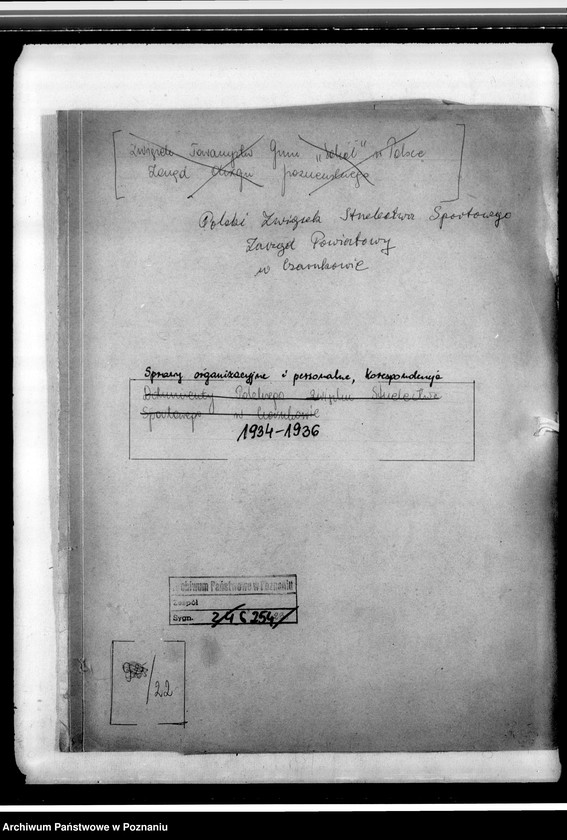 Związek Towarzystw Gimn "Sokół" w Polsce
Zarząd Okręgu poznańskiego
Polski Związek Strzelectwa Sportowego
Zarząd Powiatowy
w Czarnkowie
Sprawy organizacyjne i personalne, korespondencja
Dokumenty Polskiego Związku Strzelectwa
Sportowego w Czarnkowie
1934-1936
Archiwum Państwowe w Poznaniu
Zespół
Sygn.
/22
Archiwum Państwowe w Poznaniu